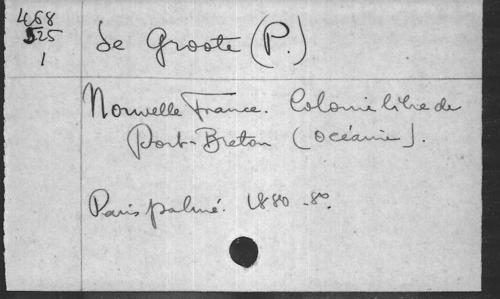 468
525
1
de Groote (P.)
Nouvelle France. Colonie libre de
Port-Breton (océanie).
Paris palmé. 1880 - 8º.